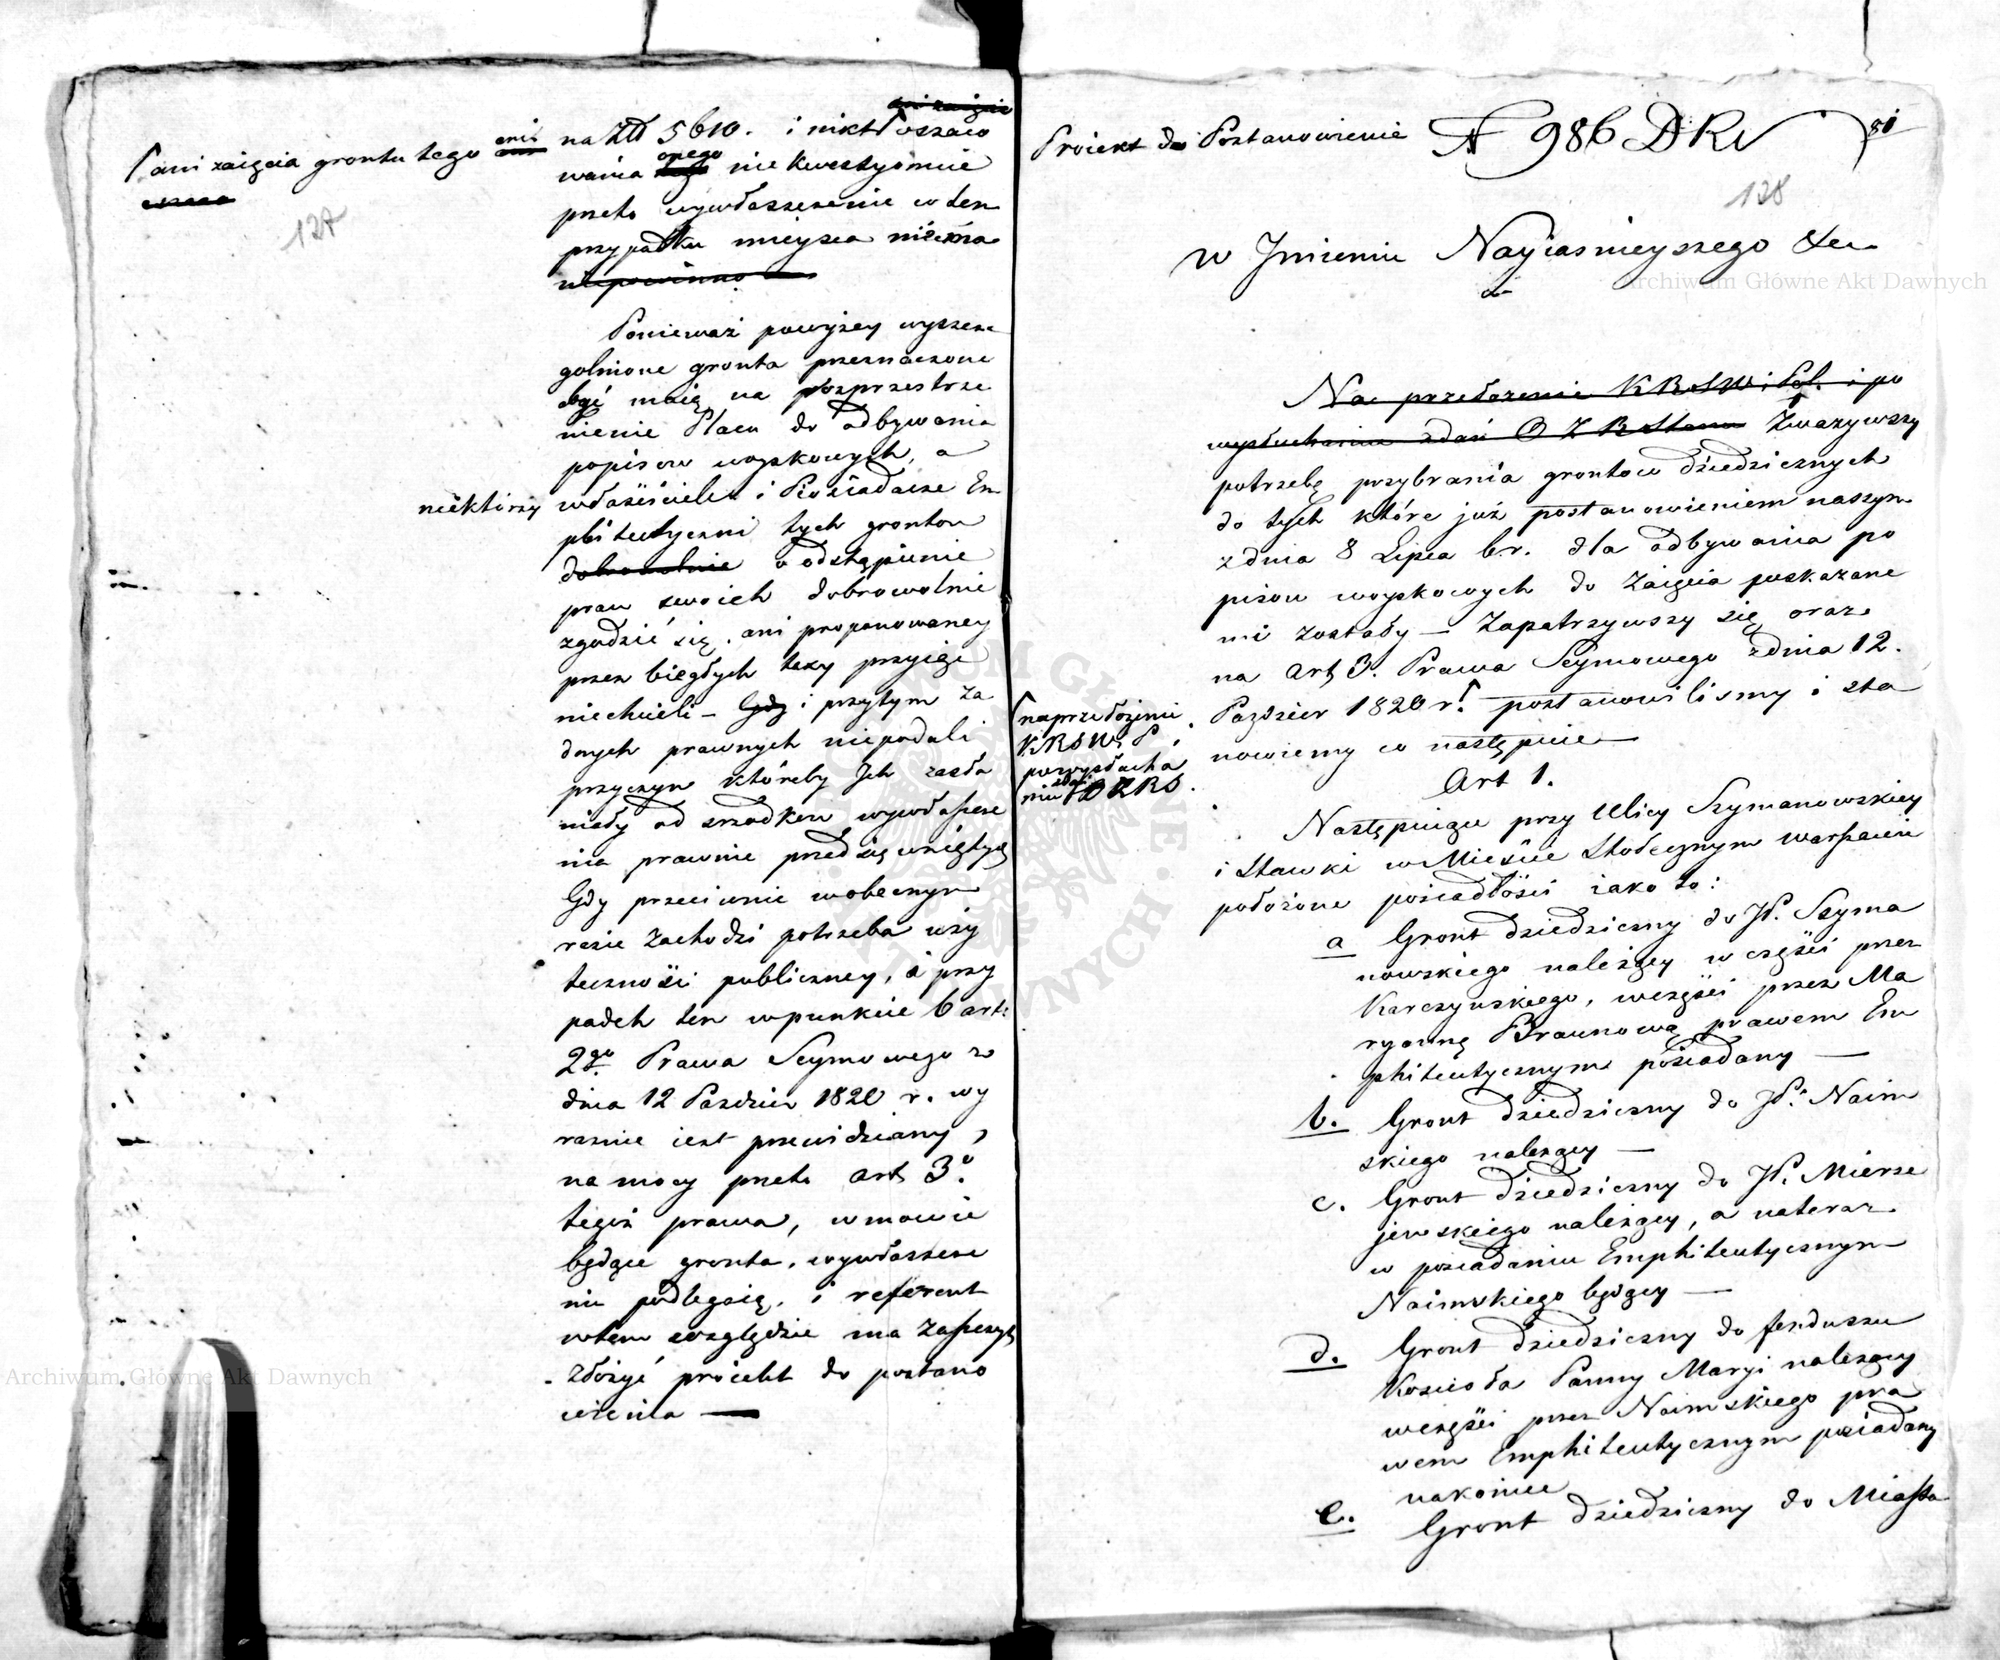 na Złł 5610. i nikt Γ oszaco
Γ ani zaięcia grontu tego ani
wania onego nie kwestyonuie
przeto wywłaszczenie w tem
127
przypadku mieysca niéma
niepowinno
Ponieważ powyżey wyszcze
golnione gronta przeznaczone
bydź maią na rozprzestrze
nienie Placu do odbywania
popisow woyskowych, a
niektórzy
właściciele i Posiadacze Em
phiteutyczni tych grontow
dobrowolnie o odstąpienie
praw swoich dobrowolnie
zgodzić się, ani proponowaney
przez biegłych taxy przyiąć
niechcieli – Gdy i przytym ża
dnych prawnych niepodali
przyczyn któreby Ich zasła
niały od srzodków wywłaszcze
nia prawnie przedsięwziętych
Gdy przeciwnie wobecnym
razie zachodzi potrzeba uży
teczności publiczney, i przy
padek ten w punkcie b art:
2go Prawa Seymowego z
dnia 12 Paździer 1820 r. wy
raznie iest przewidziany,
na mocy przeto art 3o
tegoż prawa, w mowie
będące gronta, wywłaszcze
niu podlegaią, i referent
w tem względzie ma zaszczyt
złożyć proiekt do postano
wienia —
Proiekt do Postanowienia N 986 DKV
81
128
w Imieniu Nayiasnieyszego &c
Na przełożenie KRSW i Pol. i po
wysłuchaniu zdań O Z R Stanu Zważywszy
potrzebę przybrania grontow dziedzicznych
do tych które już postanowieniem naszym
z dnia 8 Lipca b.r. dla odbywania po
pisow woyskowych do zaięcia wskazane
mi zostały – Zapatrzywszy się oraz
na art 3. Prawa Seymowego z dnia 12.
Paździer 1820 r. Γ postanowilismy i sta
nowiemy co następuie —
Γ na przełożenie
KRSW i P
po wysłucha
niu zdań O Z R S.
Art 1.
Następuiące przy Ulicy Szymanowskiey
i Stawki w Mieście Stołecznym Warszawie
położone posiadłości iako to:
a Gront dziedziczny do JP. Szyma
nowskiego należący w części przez
Karczyńskiego, w części przez Ma
ryannę Braunową prawem Em
phiteutycznym posiadany —
b. Gront dziedziczny do JP. Naim
skiego należący —
c. Gront dziedziczny do JP. Mierze
jewskiego należący, a na teraz
w posiadaniu Emphiteutycznym
Naimskiego będący —
d. Gront dziedziczny do funduszu
Kościoła Panny Maryi należący
w części przez Naimskiego pra
wem Emphiteutycznym posiadany
nakoniec
e. Gront dziedziczny do Miasta
Archiwum Główne Akt Dawnych
Archiwum Główne Akt Dawnych